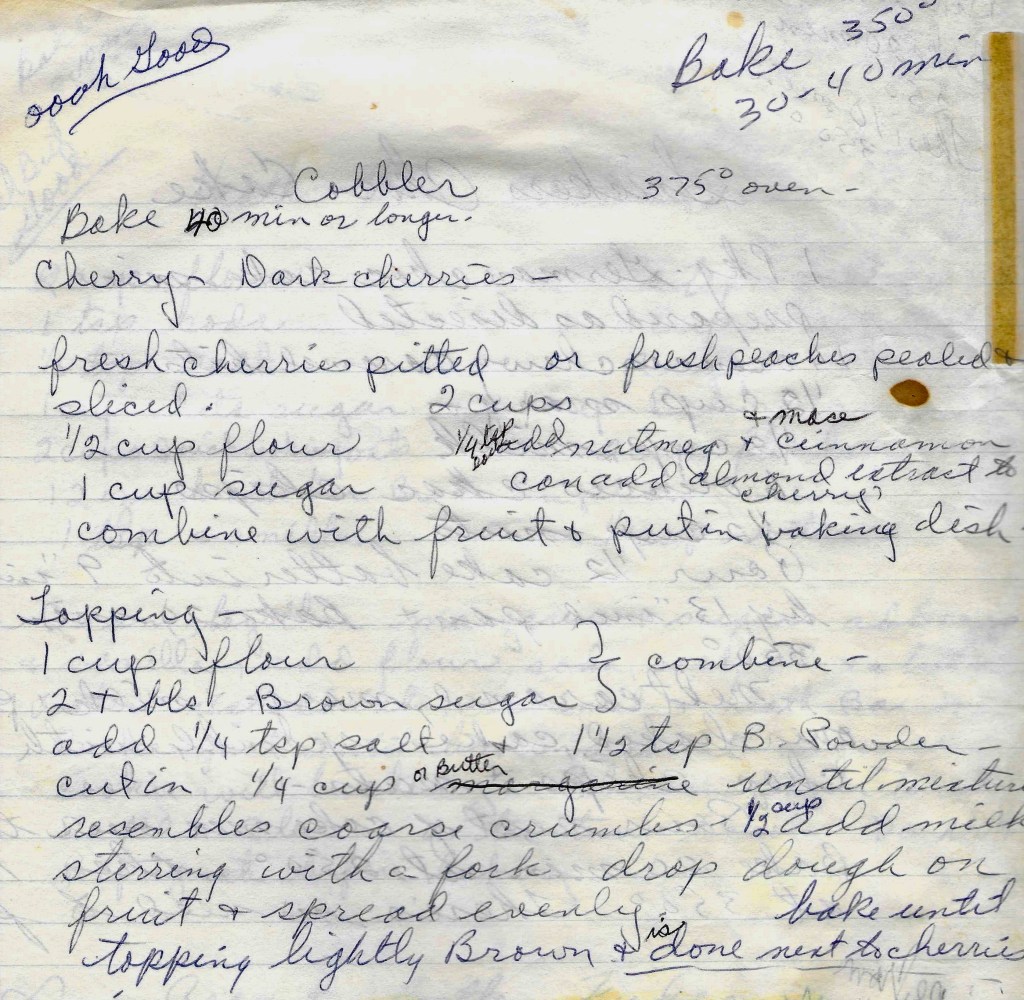 oooh Good
Bake 350°
30-40 min
Cobbler 375° oven -
Bake 40 min or longer.
Cherry - Dark cherries -
fresh cherries pitted or fresh peaches pealed &
sliced. 2 cups
& mase
1/2 cup flour 1/4 tsp each add nutmeg & cinnamon
1 cup sugar can add almond extract to
cherry
combine with fruit & put in baking dish
Topping -
1 cup flour } combine -
2 tbls Brown sugar
add 1/4 tsp salt & 1 1/2 tsp B. Powder -
cut in 1/4 cup or Butter margarine until mixture
resembles coarse crumbs - 1/2 cup add milk
stirring with a fork drop dough on
fruit & spread evenly bake until
topping lightly Brown & is done next to cherries